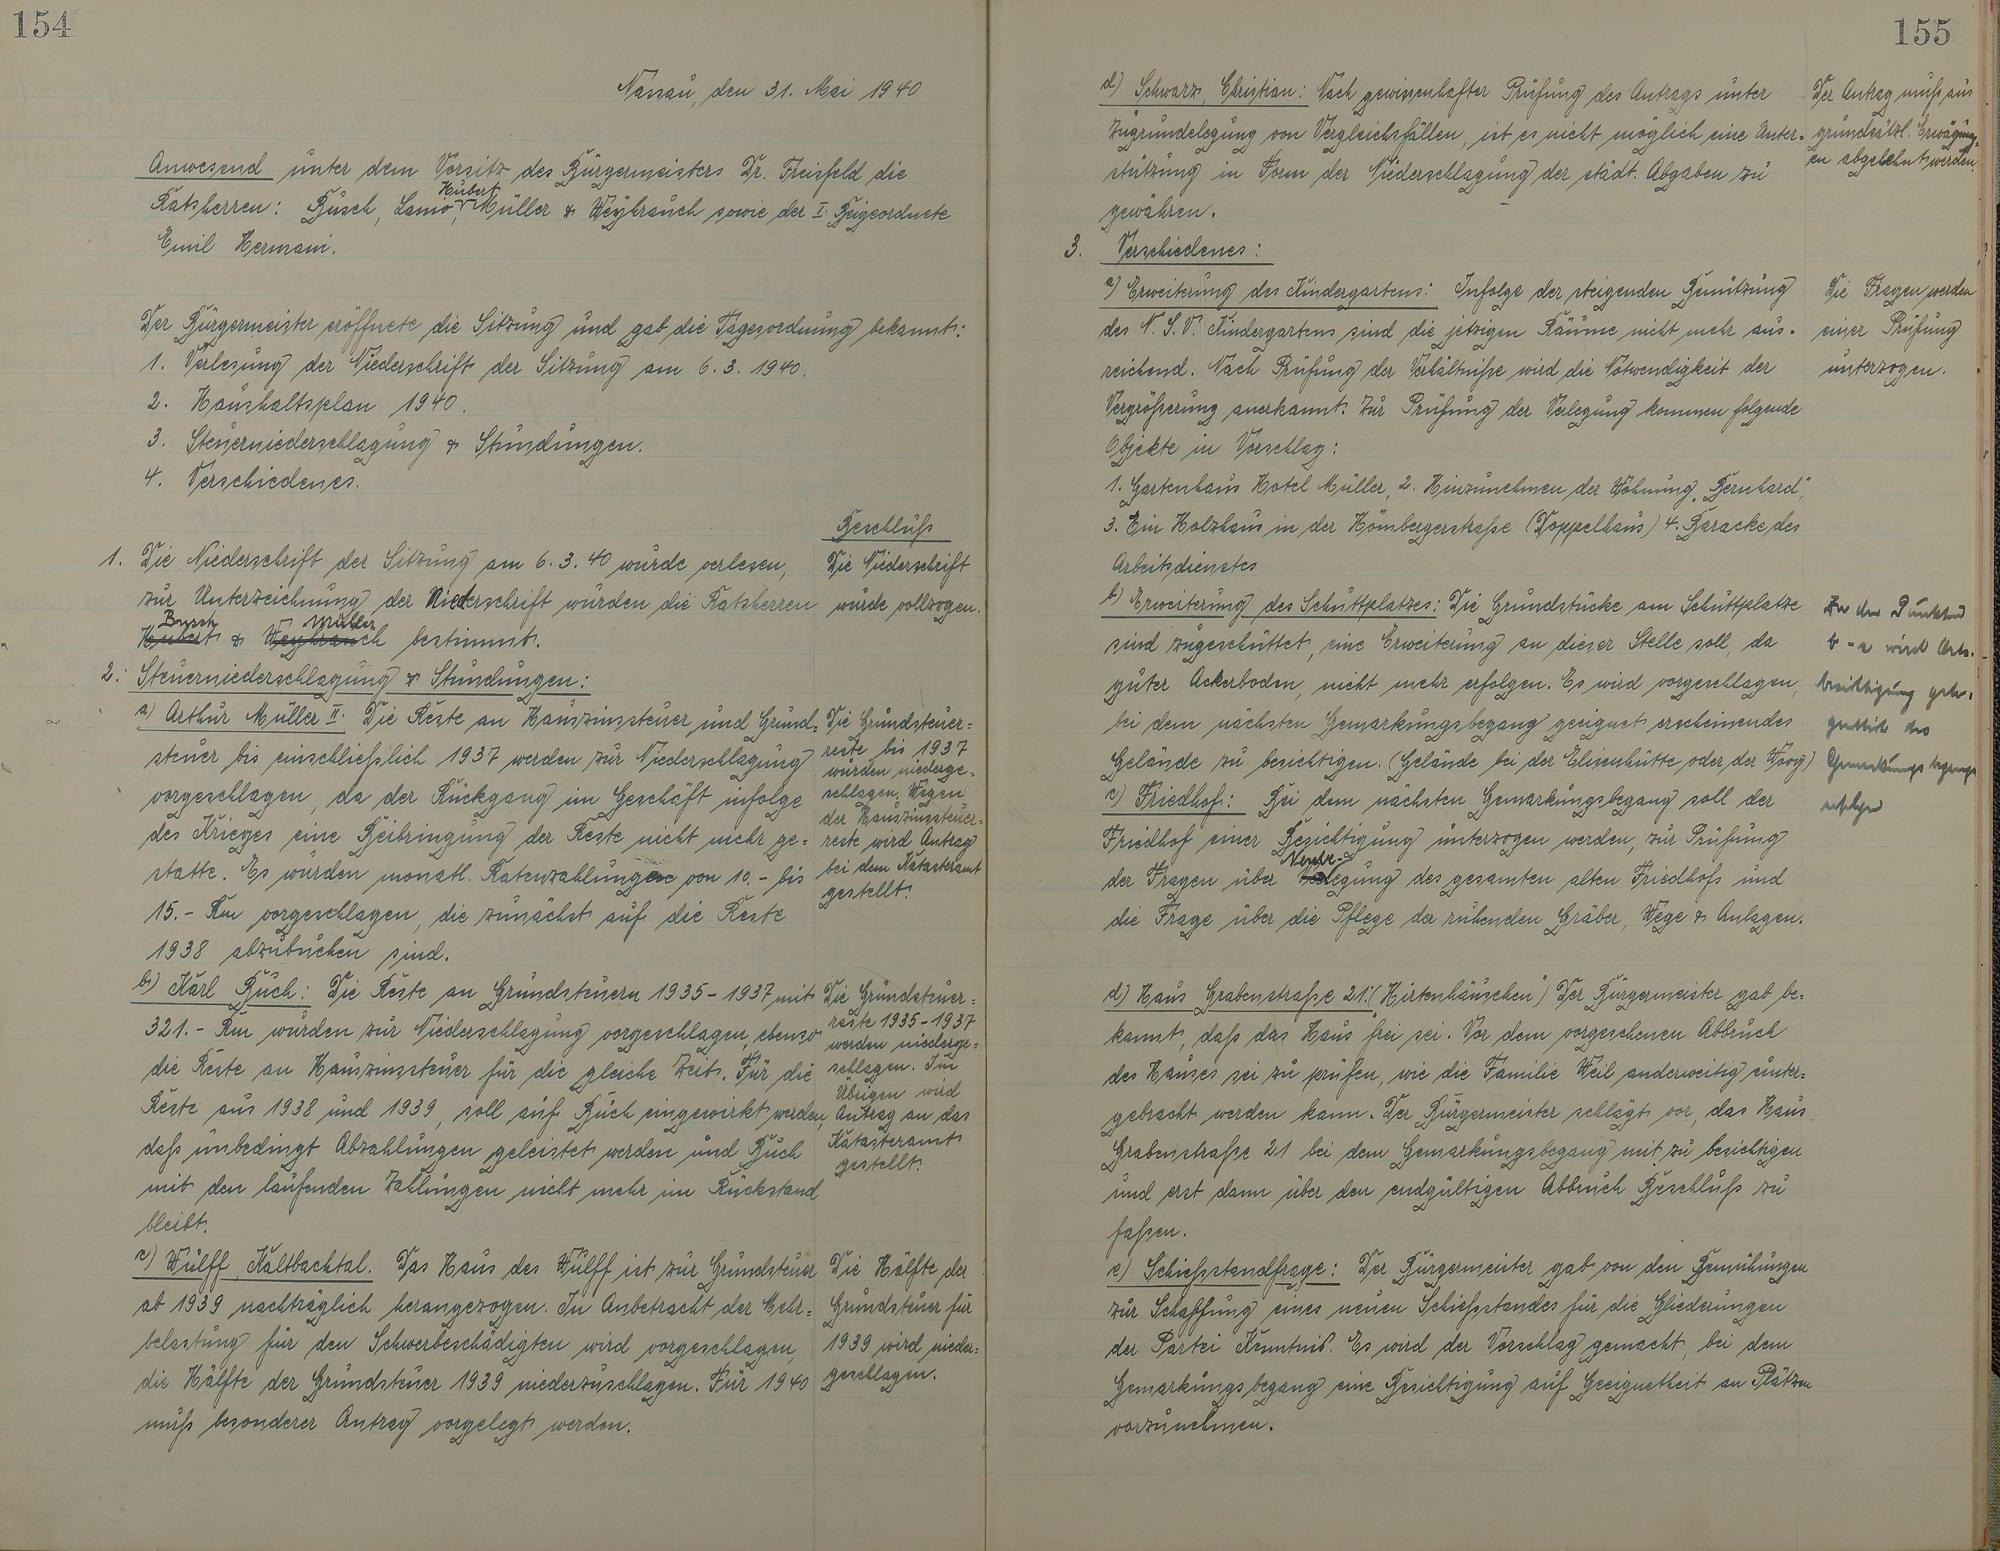 154
Nassau, den 31. Mai 1940
Anwesend unter dem Vorsitz des Bürgermeisters Dr. Freisfeld die
Hubert
Ratsherren: Busch, Lamo, Müller & Weyhrauch sowie der I. Beigeordnete
Emil Hermani.
Der Bürgermeister eröffnete die Sitzung und gab die Tagesordnung bekannt:
1. Verlesung der Niederschrift der Sitzung am 6.3.1940.
2. Haushaltsplan 1940.
3. Steuerniederschlagung & Stundungen.
4. Verschiedenes.
Beschluß
1. Die Niederschrift der Sitzung am 6.3.40 wurde verlesen,
zur Unterzeichnung der Niederschrift wurden die Ratsherren
Busch Müller
Hubert & Weyhrauch bestimmt.
Die Niederschrift
wurde vollzogen.
2. Steuerniederschlagung & Stundungen:
a) Arthur Müller II. Die Reste an Hauszinssteuer und Grund-
steuer bis einschließlich 1937 werden zur Niederschlagung
vorgeschlagen, da der Rückgang im Geschäft infolge
des Krieges eine Beibringung der Reste nicht mehr ge-
statte. Es wurden monatl. Ratenzahlungen von 10.- bis
15.- Rm vorgeschlagen, die zunächst auf die Reste
1938 abzubuchen sind.
Die Grundsteuer-
reste bis 1937
wurden niederge-
schlagen. Wegen
der Hauszinssteuer-
reste wird Antrag
bei dem Katasteramt
gestellt.
b) Karl Buch: Die Reste an Grundsteuern 1935-1937 mit
321.- Rm wurden zur Niederschlagung vorgeschlagen, ebenso
die Reste an Hauszinssteuer für die gleiche Zeit. Für die
Reste aus 1938 und 1939, soll auf Buch eingewirkt werden,
daß unbedingt Abzahlungen geleistet werden und Buch
mit den laufenden Zahlungen nicht mehr im Rückstand
bleibt.
Die Grundsteuer-
reste 1935-1937
werden niederge-
schlagen. Im
Übrigen wird
Antrag an das
Katasteramt
gestellt.
c) Wulff, Kaltbachtal. Das Haus des Wulff ist zur Grundsteuer
ab 1939 nachträglich herangezogen. In Anbetracht der Mehr-
belastung für den Schwerbeschädigten wird vorgeschlagen,
die Hälfte der Grundsteuer 1939 niederzuschlagen. Für 1940
muß besonderer Antrag vorgelegt werden.
Die Hälfte der
Grundsteuer für
1939 wird nieder-
geschlagen.
155
d) Schwarz, Christian: Nach gewissenhafter Prüfung des Antrags unter
Zugrundelegung von Vergleichsfällen, ist es nicht möglich eine Unter-
stützung in Form der Niederschlagung der städt. Abgaben zu
gewähren.
Der Antrag muß aus
grundsätzl. Erwägung-
en abgelehnt werden.
3. Verschiedenes:
a) Erweiterung des Kindergartens: Infolge der steigenden Benützung
des N.S.V. Kindergartens sind die jetzigen Räume nicht mehr aus-
reichend. Nach Prüfung der Verhältnisse wird die Notwendigkeit der
Vergrößerung anerkannt. Zur Prüfung der Verlegung kommen folgende
Objekte in Vorschlag:
1. Gartenhaus Hotel Müller, 2. Hinzunehmen der Wohnung „Bernhard",
3. Ein Holzhaus in der Hömbergerstraße (Doppelhaus) 4. Baracke des
Arbeitsdienstes
Die Fragen werden
einer Prüfung
unterzogen.
b) Erweiterung des Schuttplatzes: Die Grundstücke am Schuttplatze
sind zugeschüttet, eine Erweiterung an dieser Stelle soll, da
guter Ackerboden, nicht mehr erfolgen. Es wird vorgeschlagen,
bei dem nächsten Gemarkungsbegang geeignet erscheinendes
Gelände zu besichtigen. (Gelände bei der Elisenhütte oder der Woog)
Zu den Punkten
b - e wird Orts-
besichtigung gele-
gentlich des
Gemarkungsbegangs
erfolgen
c) Friedhof: Bei dem nächsten Gemarkungsbegang soll der
Friedhof einer Besichtigung unterzogen werden, zur Prüfung
der Fragen über Neube-legung des gesamten alten Friedhofs und
die Frage über die Pflege der ruhenden Gräber, Wege & Anlagen.
d) Haus Grabenstraße 21 („Hirtenhäuschen") Der Bürgermeister gab be-
kannt, daß das Haus frei sei. Vor dem vorgesehenen Abbruch
des Hauses sei zu prüfen, wie die Familie Weil anderweitig unter-
gebracht werden kann. Der Bürgermeister schlägt vor, das Haus
Grabenstraße 21 bei dem Gemarkungsbegang mit zu besichtigen
und erst dann über den endgültigen Abbruch Beschluß zu
faßen.
e) Schießstandfrage: Der Bürgermeister gab von den Bemühungen
zur Schaffung eines neuen Schießstandes für die Gliederungen
der Partei Kenntnis. Es wird der Vorschlag gemacht, bei dem
Gemarkungsbegang eine Besichtigung auf Geeignetheit an Plätzen
vorzunehmen.